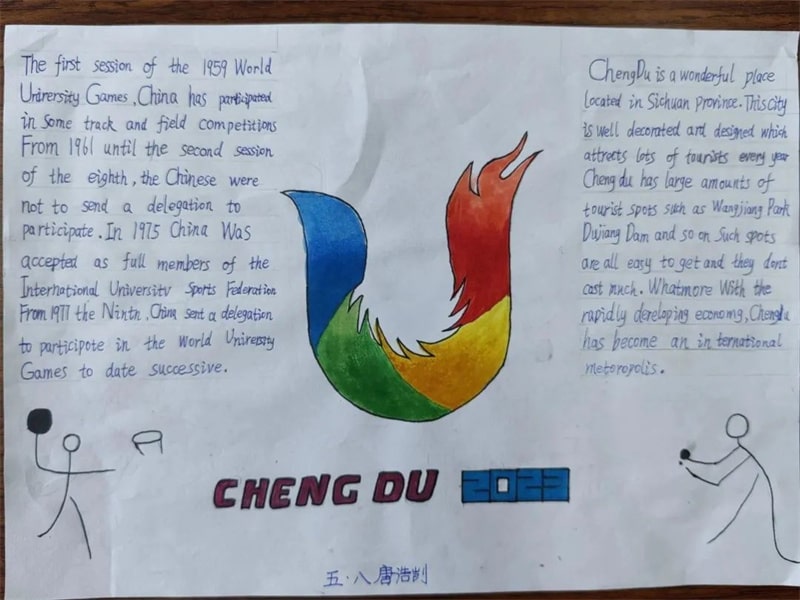 The first session of the 1959 World
University Games, China has participated
in some track and field competitions
From 1961 until the second session
of the eighth, the Chinese were
not to send a delegation to
participate. In 1975 China Was
accepted as full members of the
International University Sports Federation
From 1977 the Ninth, China sent a delegation
to participate in the World University
Games to date successive.
ChengDu is a wonderful place
located in Sichuan province. This city
is well decorated and designed which
attracts lots of tourists every year
Cheng du has large amounts of
tourist spots such as Wangjiang Park
Dujiang Dam and so on Such spots
are all easy to get and they dont
cast much. Whatmore With the
rapidly developing economy, Chengdu
has become an in ternational
meteropolis.
CHENG DU 2023
五·八 唐浩